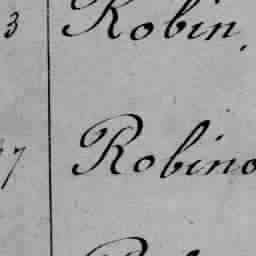 3 Robin,
7 Robino